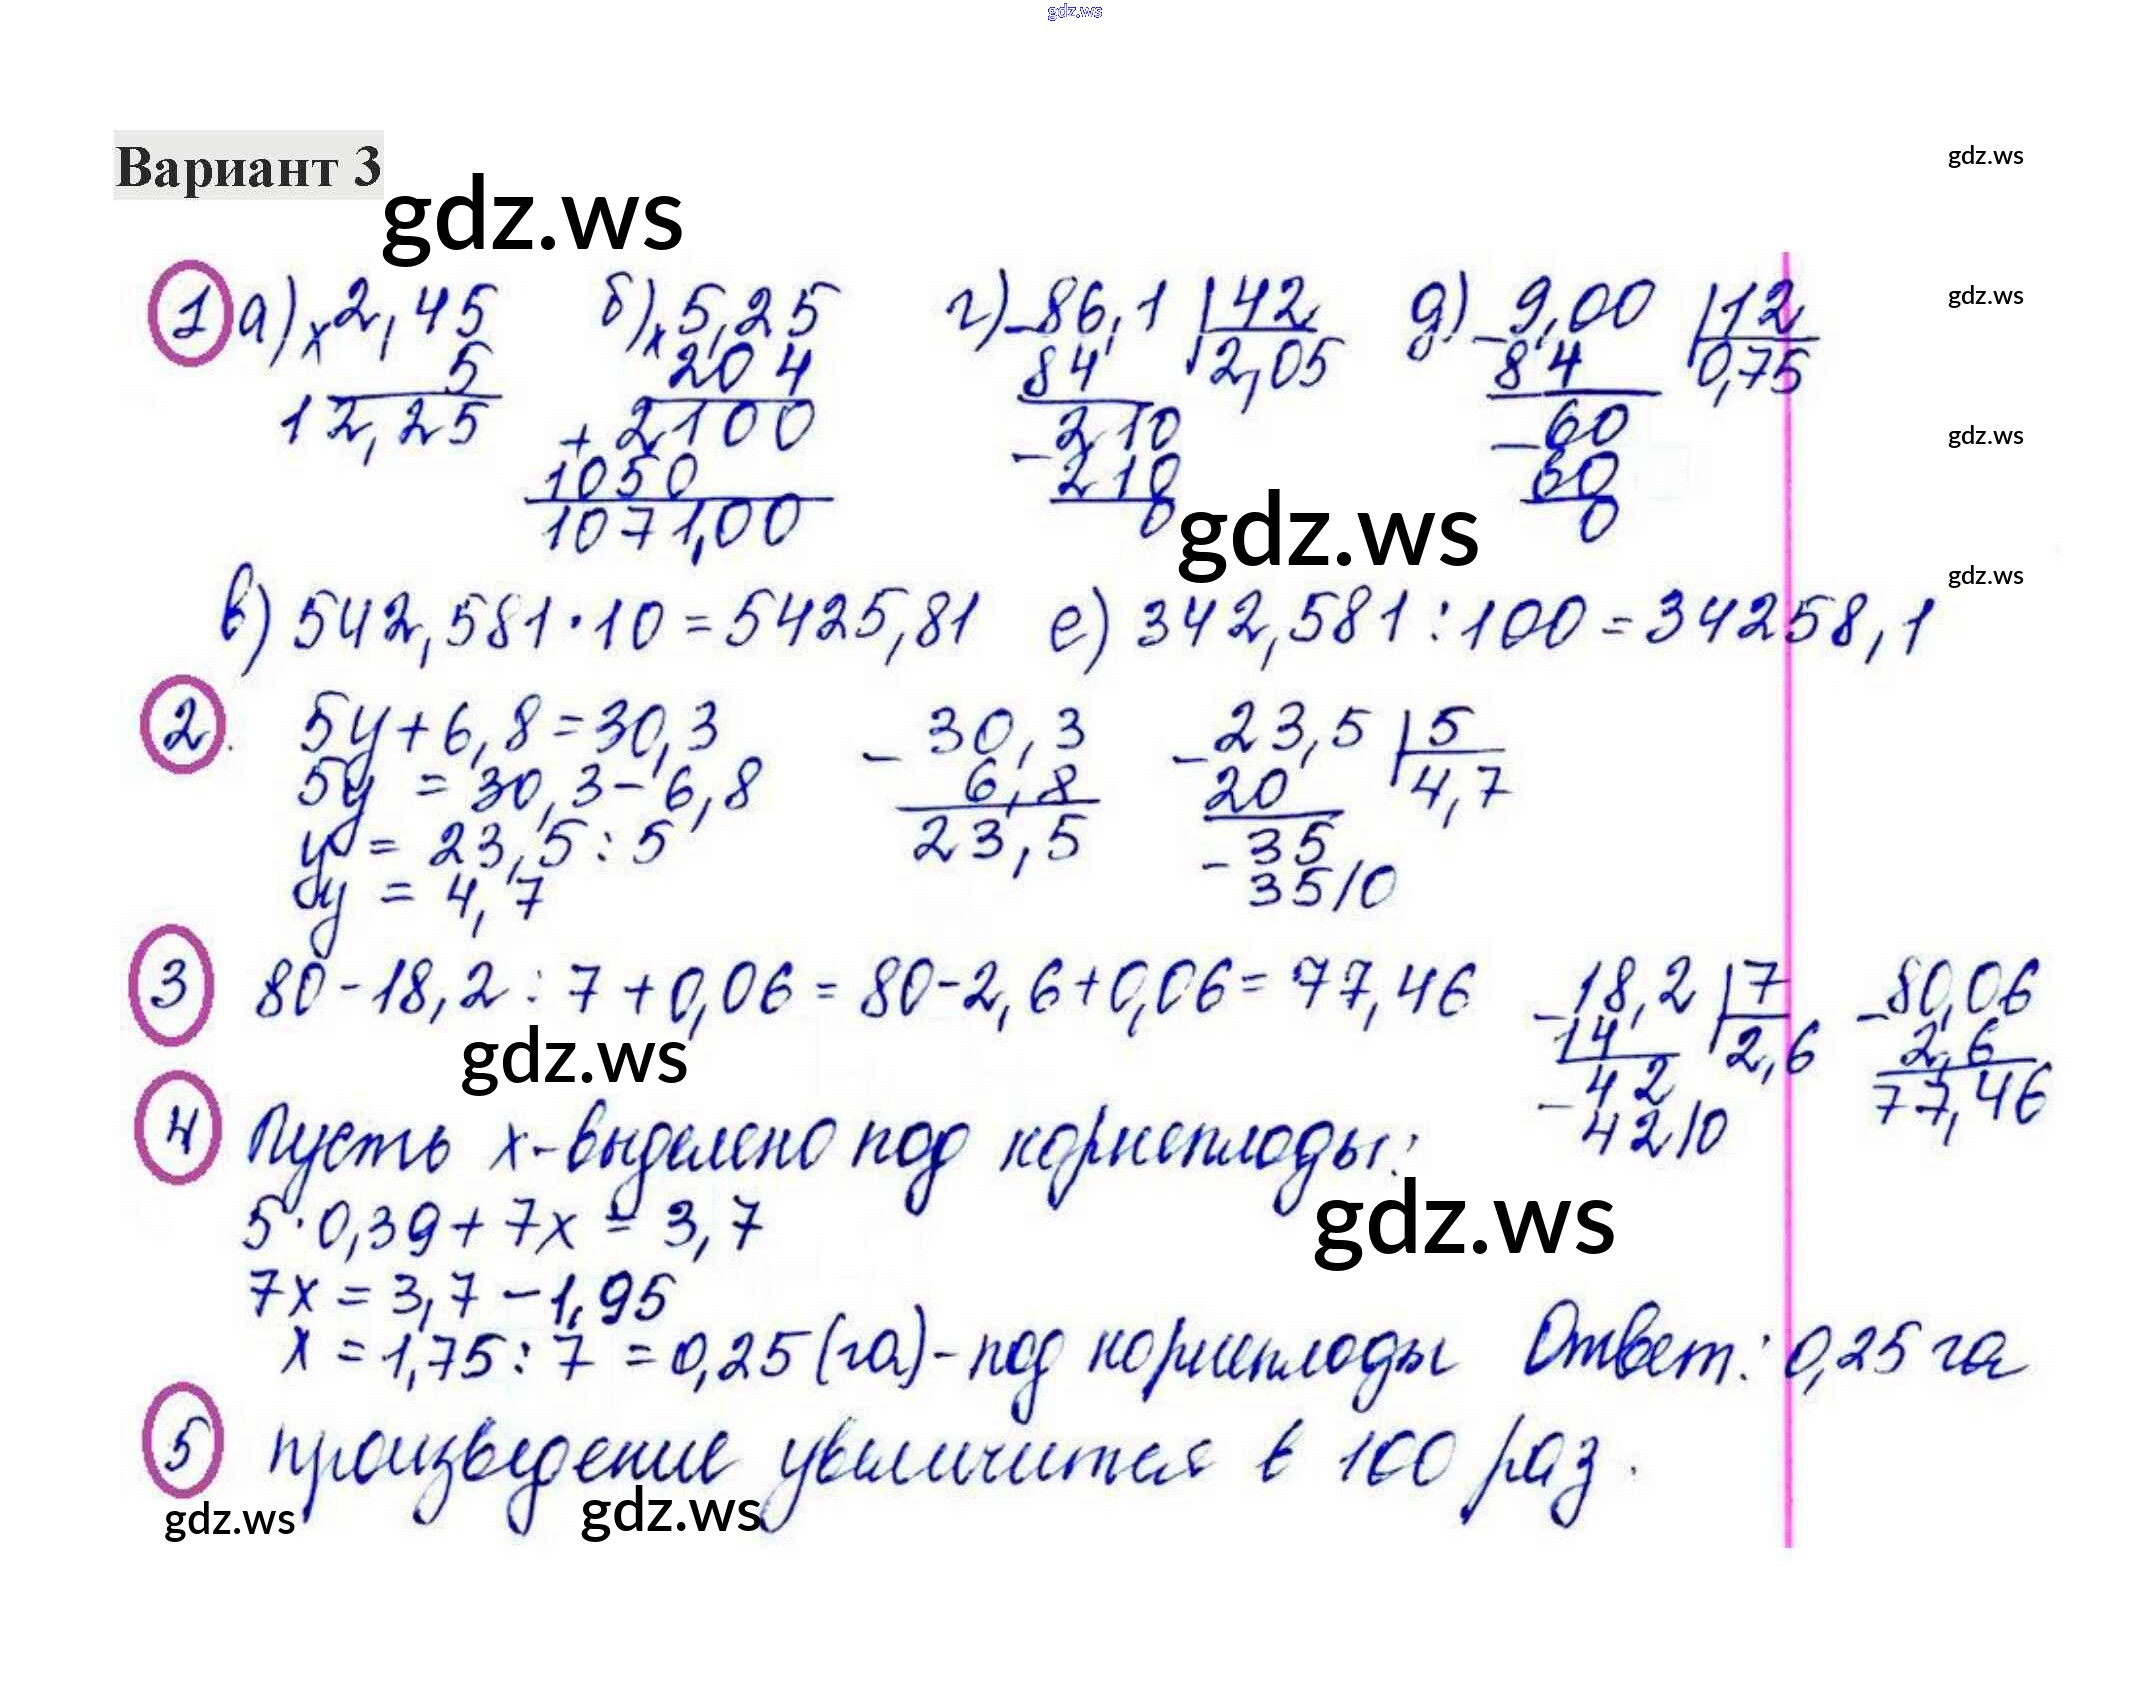 gdz.ws
Вариант 3
gdz.ws
gdz.ws
1 а) × 2,45 б) × 5,25 г) - 86,1 | 42 д) - 9,00 | 12
gdz.ws
5 204 84 2,05 84 0,75
12,25 + 2100 - 210 - 60
gdz.ws
1050 210 60
1071,00 0 0
gdz.ws
в) 542,581 · 10 = 5425,81 е) 342,581 : 100 = 34258,1
gdz.ws
2. 5у + 6,8 = 30,3 - 30,3 - 23,5 | 5
5у = 30,3 - 6,8 6,8 20 4,7
у = 23,5 : 5 23,5 - 35
у = 4,7 35/0
3 80 - 18,2 : 7 + 0,06 = 80 - 2,6 + 0,06 = 77,46 - 18,2 | 7 - 80,06
gdz.ws
14 2,6 2,6
- 42 77,46
42/0
4 Пусть х - выделено под корнеплоды:
5 · 0,39 + 7х = 3,7
gdz.ws
7х = 3,7 - 1,95
х = 1,75 : 7 = 0,25 (га) - под корнеплоды Ответ: 0,25 га
5 произведение увеличится в 100 раз.
gdz.ws
gdz.ws